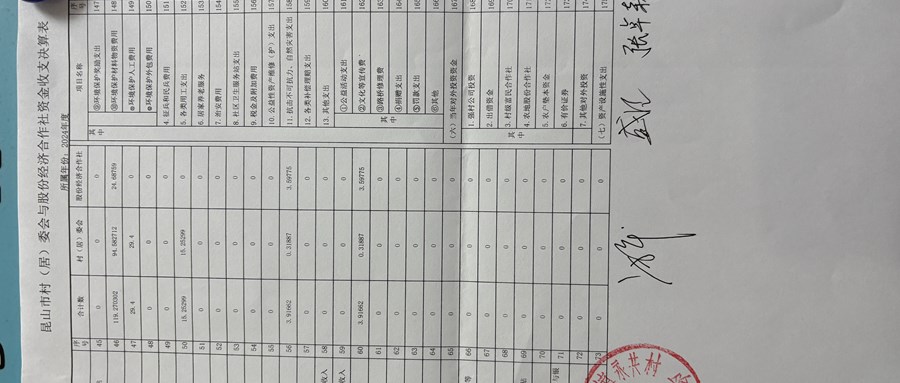 昆山市村（居）委会与股份经济合作社资金收支决算表
所属年份：2024年度
序号 合计数 村（居）委会 股份经济合作社 项目名称 序号
45 0 0 0 环境保护奖励支出 147
46 119.270302 94.582712 24.68759 环境保护材料物资费用 148
47 29.4 29.4 0 ※环境保护人工费用 149
48 0 0 0 ※环境保护外包费用 150
49 0 0 0 4.征兵和民兵费用 151
50 15.25299 15.25299 0 5.各类用工支出 152
51 0 0 0 6.居家养老服务 153
52 0 0 0 7.治安费用 154
53 0 0 0 8.社区卫生服务站支出 155
54 0 0 0 9.税金及附加费用 156
55 0 0 0 10.公益性资产维修（护）支出 157
56 3.91662 0.31887 3.59775 11.抗击不可抗力、自然灾害支出 158
57 0 0 0 12.各类补偿理赔支出 159
收入 58 0 0 0 13.其他支出 160
收入 59 0 0 0 其中 ①公益活动支出 161
60 3.91662 0.31887 3.59775 ②文化等宣传费 162
61 0 0 0 ③路桥修理费 163
62 0 0 0 ④捐赠支出 164
63 0 0 0 ⑤罚款支出 165
64 0 0 0 ⑥其他 166
65 0 0 0 （六）当年对外投资资金 167
等 66 0 0 0 其中 1.强村公司投资 168
67 0 0 0 2.出借资金 169
68 0 0 0 3.村级富民合作社 170
69 0 0 0 4.农地股份合作社 171
70 0 0 0 5.农户垫本资金 172
与银 71 0 0 0 6.有价证券 173
72 0 0 0 7.其他对外投资 174
73 0 0 0 （七）资产设施性支出 175
永共村